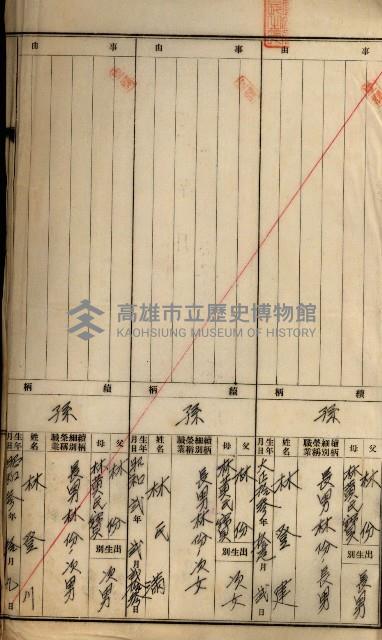 事由
續柄
孫
父 林份
母 林黃氏寶
出生別 長男
續柄細別榮稱職業
長男林份ノ長男
姓名 林登建
生年月日 大正拾
年
月
貳日
事由
續柄
孫
父 林份
母 林黃氏寶
出生別 次女
續柄細別榮稱職業
長男林份ノ次女
姓名 林氏滿
生年月日 昭和貳年貳月
日
事由
續柄
孫
父 林份
母 林黃氏寶
出生別 次男
續柄細別榮稱職業
長男林份ノ次男
姓名 林登川
生年月日 昭和參年拾月九日
高雄市立歷史博物館
KAOHSIUNG MUSEUM OF HISTORY